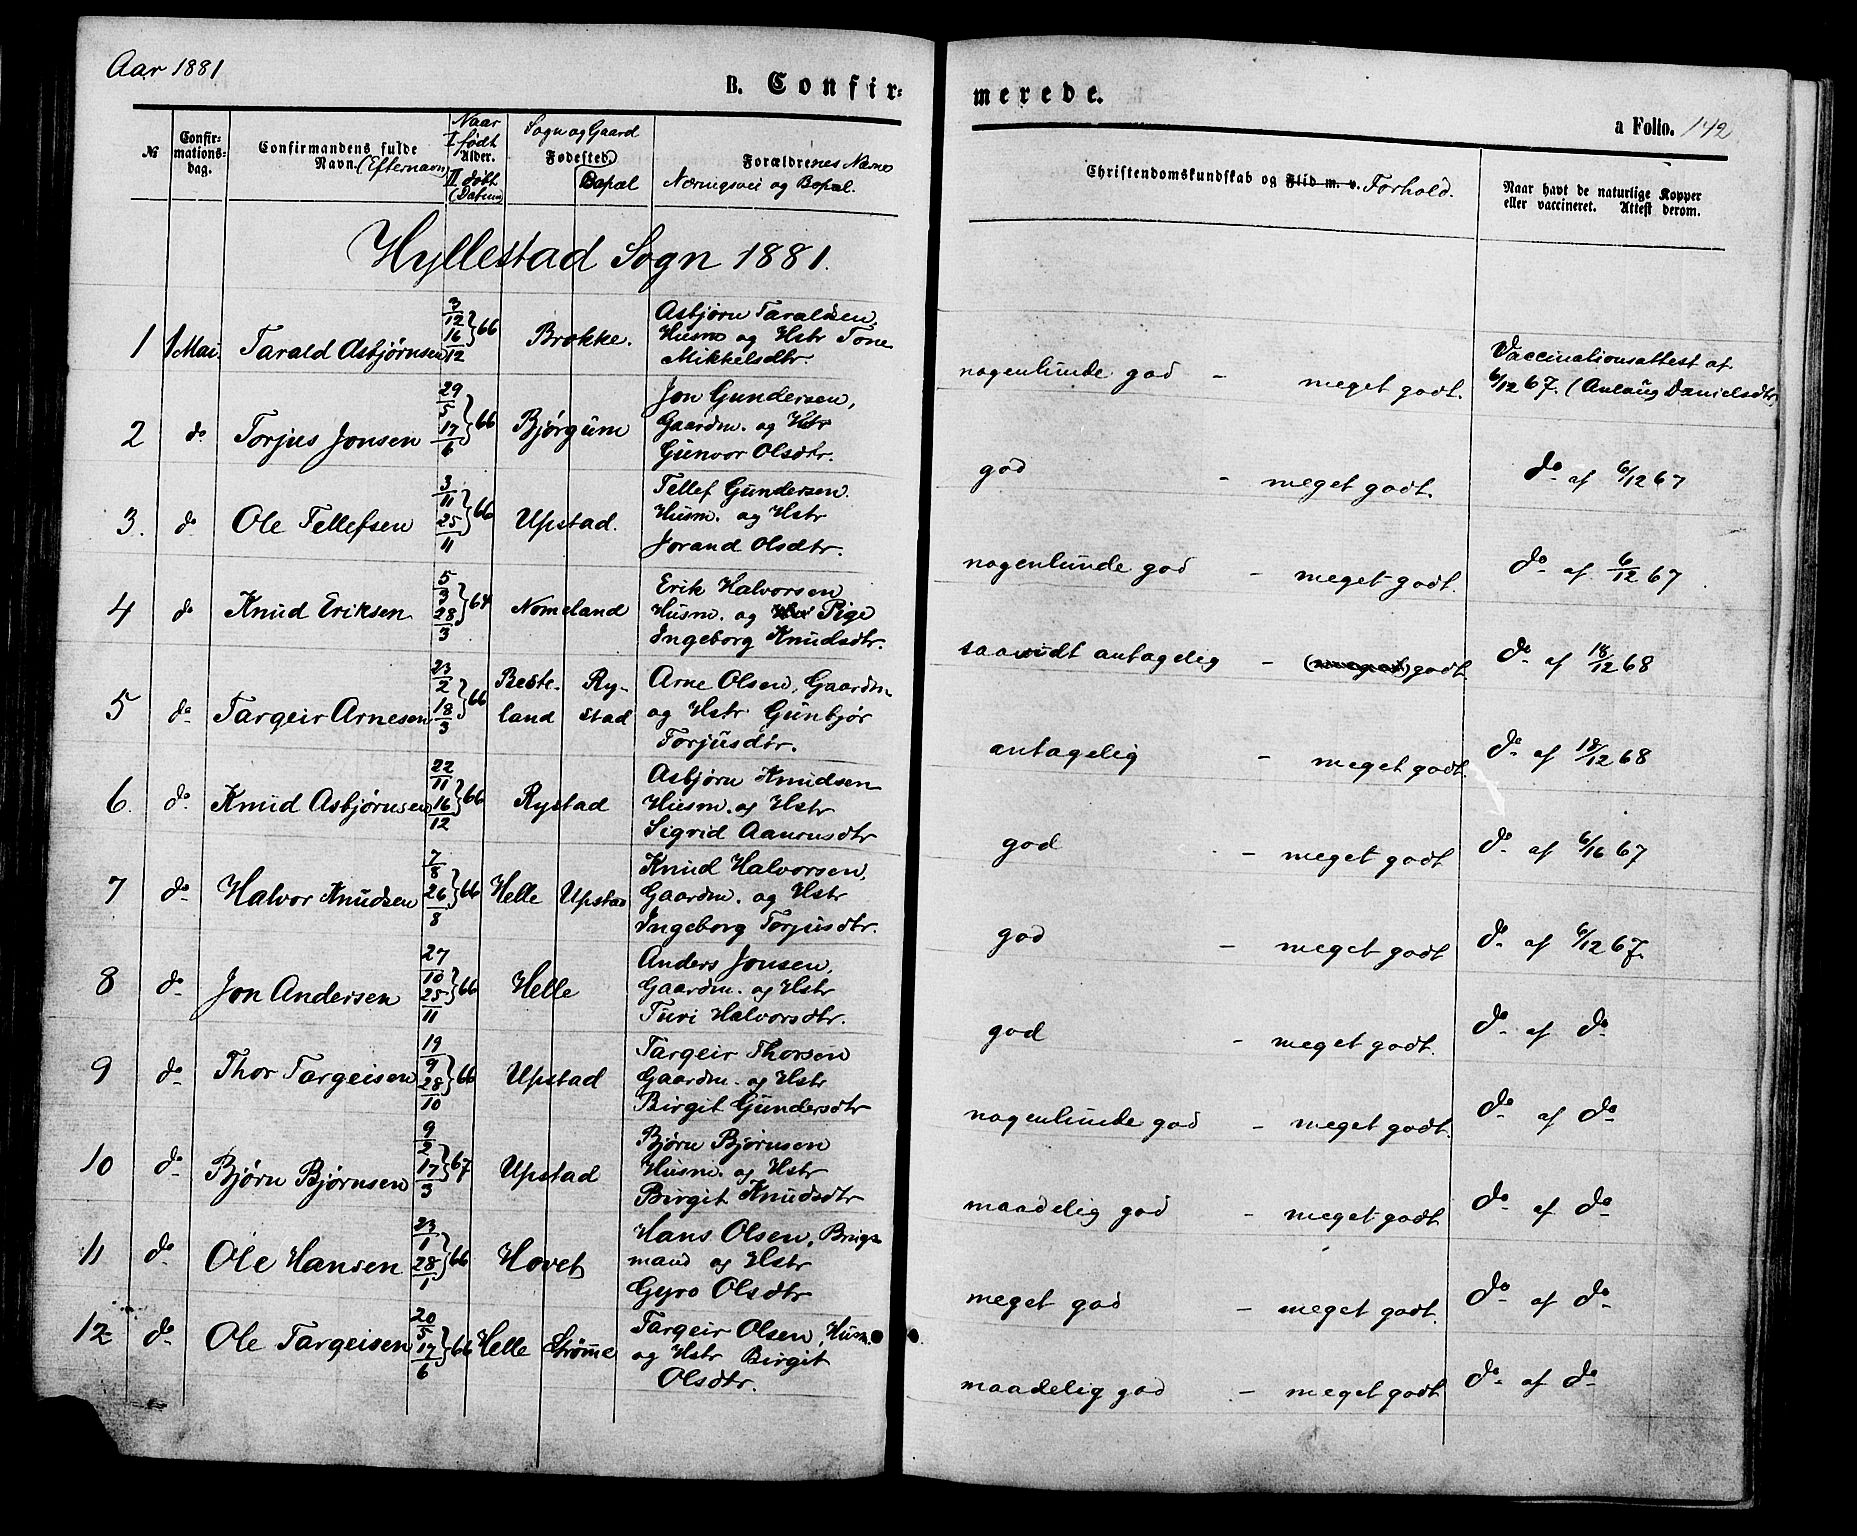 Aar 1881
B. Confir=
merede.
a Folio. 142
№
Confir-
mations-
dag.
Confirmandens fulde
Navn. (Efternavn)
Naar
I født
Alder.
II døbt
(Datum)
Sogn og Gaard
Fødested.
Bopæl
Forældrenes Navne
Næringsvei og Bopæl.
Christendomskundskab og Flid m. v. Forhold.
Naar havt de naturlige Kopper
eller vaccineret. Attest derom.
Hyllestad Sogn 1881.
1 1 Mai Tarald Asbjørnsen 3/12 16/12 }66 Brokke. Asbjørn Taraldsen,
Husm og Hstr Tone
Mikkelsdtr.
nogenlunde god - meget godt. Vaccinationsattest af
6/12 67. (Anlaug Danielsdtr)
2 do Torjus Jonsen 29/5 17/6 }66 Bjørgum Jon Gundersen,
Gaardm. og Hstr
Gunvor Olsdtr.
god - meget godt. do af 6/12 67
3. do Ole Tellefsen 3/11 25/11 }66 Upstad. Tellef Gundersen.
Husm. og Hstr
Jorand Olsdtr.
nogenlunde god - meget godt. do af 6/12 67
4 do Knud Eriksen 5/3 28/3 }64 Nomeland Erik Halvorsen
Husm. og Pige
Ingeborg Knudsdtr.
saavidt antagelig - godt. do af 18/12 68
5 do Targeir Arnesen 23/2 18/3 }66 Beste- Ry- Arne Olsen, Gaardm
land stad og Hstr Gunbjør
Torjusdtr.
antagelig - meget godt. do af 18/12 68
6. do Knud Asbjørnsen 22/11 16/12 }66 Rystad Asbjørn Knudsen
Husm. og Hstr
Sigrid Aanonsdtr
god - meget godt do af 6/16 67
7 do Halvor Knudsen 7/8 26/8 }66 Helle Upstad Knud Halvorsen,
Gaardm. og Hstr
Ingeborg Torjusdtr.
god - meget godt do af 6/12 67.
8 do Jon Andersen 27/10 25/11 }66 Helle Anders Jonsen,
Gaardm. og Hstr
Turi Halvorsdtr.
god - meget godt. do af do
9 do Thor Targeisen 19/9 28/10 }66 Upstad Targeir Thorsen
Gaardm. og Hstr
Birgit Gundersdtr
nogenlunde god - meget godt. do af do
10 do Bjørn Bjørnsen 9/2 17/3 }67 Upstad Bjørn Bjørnsen
Husm. og Hstr
Birgit Knudsdtr
maadelig god - meget godt do af do
11 do Ole Hansen 23/1 28/1 }66 Hovet Hans Olsen, Brugs
mand og Hstr
Gyro Olsdtr
meget god - meget godt. do af do
12 do Ole Targeisen 20/5 17/6 }66 Helle Strømme Targeir Olsen, Husm.
og Hstr Birgit
Olsdtr.
maadelig god - meget godt do af do